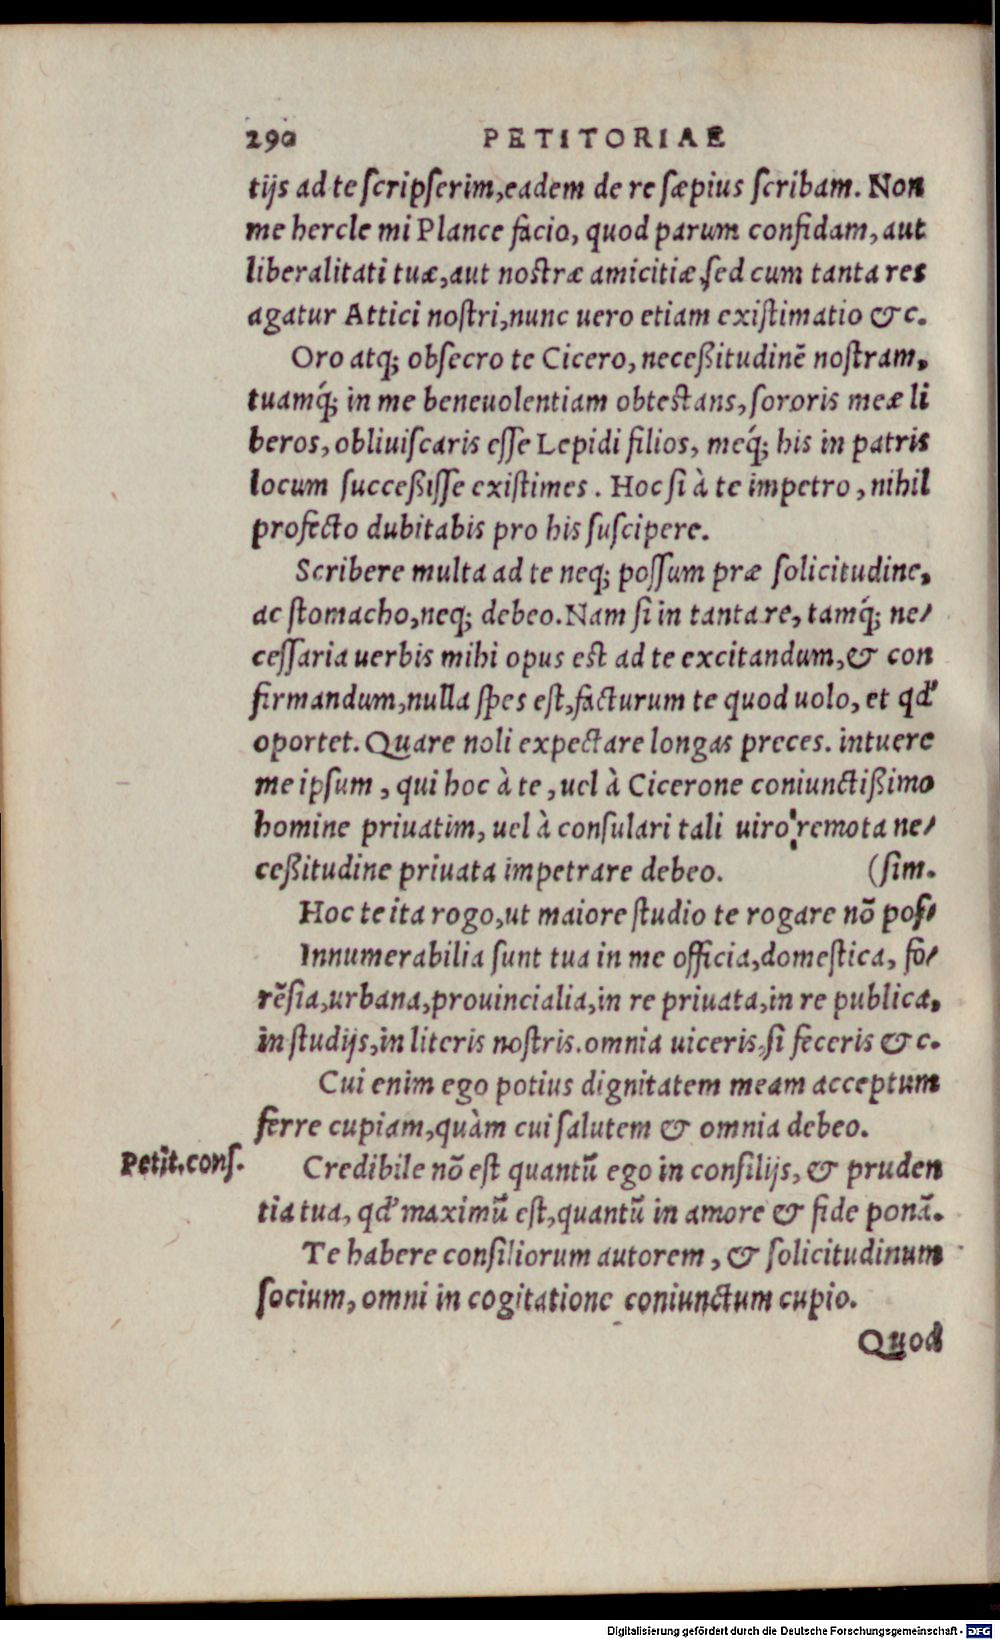 290 PETITORIAE
tijs ad te ſcripſerim, eadem de re ſæpius ſcribam. Non
me hercle mi Plance facio, quod parum confidam, aut
liberalitati tuæ, aut noſtræ amicitiæ, ſed cum tanta res
agatur Attici noſtri, nunc uero etiam exiſtimatio &c.
Oro atq; obſecro te Cicero, neceßitudinē noſtram,
tuamq́; in me beneuolentiam obteſtans, ſororis meæ li
beros, obliuiſcaris eſſe Lepidi filios, meq́; his in patris
locum ſucceßiſſe exiſtimes. Hoc ſi à te impetro, nihil
profecto dubitabis pro his ſuſcipere.
Scribere multa ad te neq; poſſum præ ſolicitudine,
ac ſtomacho, neq; debeo. Nam ſi in tanta re, tamq́; ne/
ceſſaria uerbis mihi opus eſt ad te excitandum, & con
firmandum, nulla ſpes eſt, facturum te quod uolo, et qđ
oportet. Quare noli expectare longas preces. intuere
me ipſum, qui hoc à te, uel à Cicerone coniunctißimo
homine priuatim, uel à conſulari tali uiro, remota ne/
ceßitudine priuata impetrare debeo. (ſim.
Hoc te ita rogo, ut maiore ſtudio te rogare nō poſ/
Innumerabilia ſunt tua in me officia, domeſtica, fo/
rēſia, urbana, prouincialia, in re priuata, in re publica,
in ſtudijs, in literis noſtris. omnia uiceris, ſi feceris &c.
Cui enim ego potius dignitatem meam acceptum
ferre cupiam, quàm cui ſalutem & omnia debeo.
Petit. conſ.
Credibile nō eſt quantū ego in conſilijs, & pruden
tia tua, qđ maximū eſt, quantū in amore & fide ponā.
Te habere conſiliorum autorem, & ſolicitudinum
ſocium, omni in cogitatione coniunctum cupio.
Quod
Digitalisierung gefördert durch die Deutsche Forschungsgemeinschaft - DFG